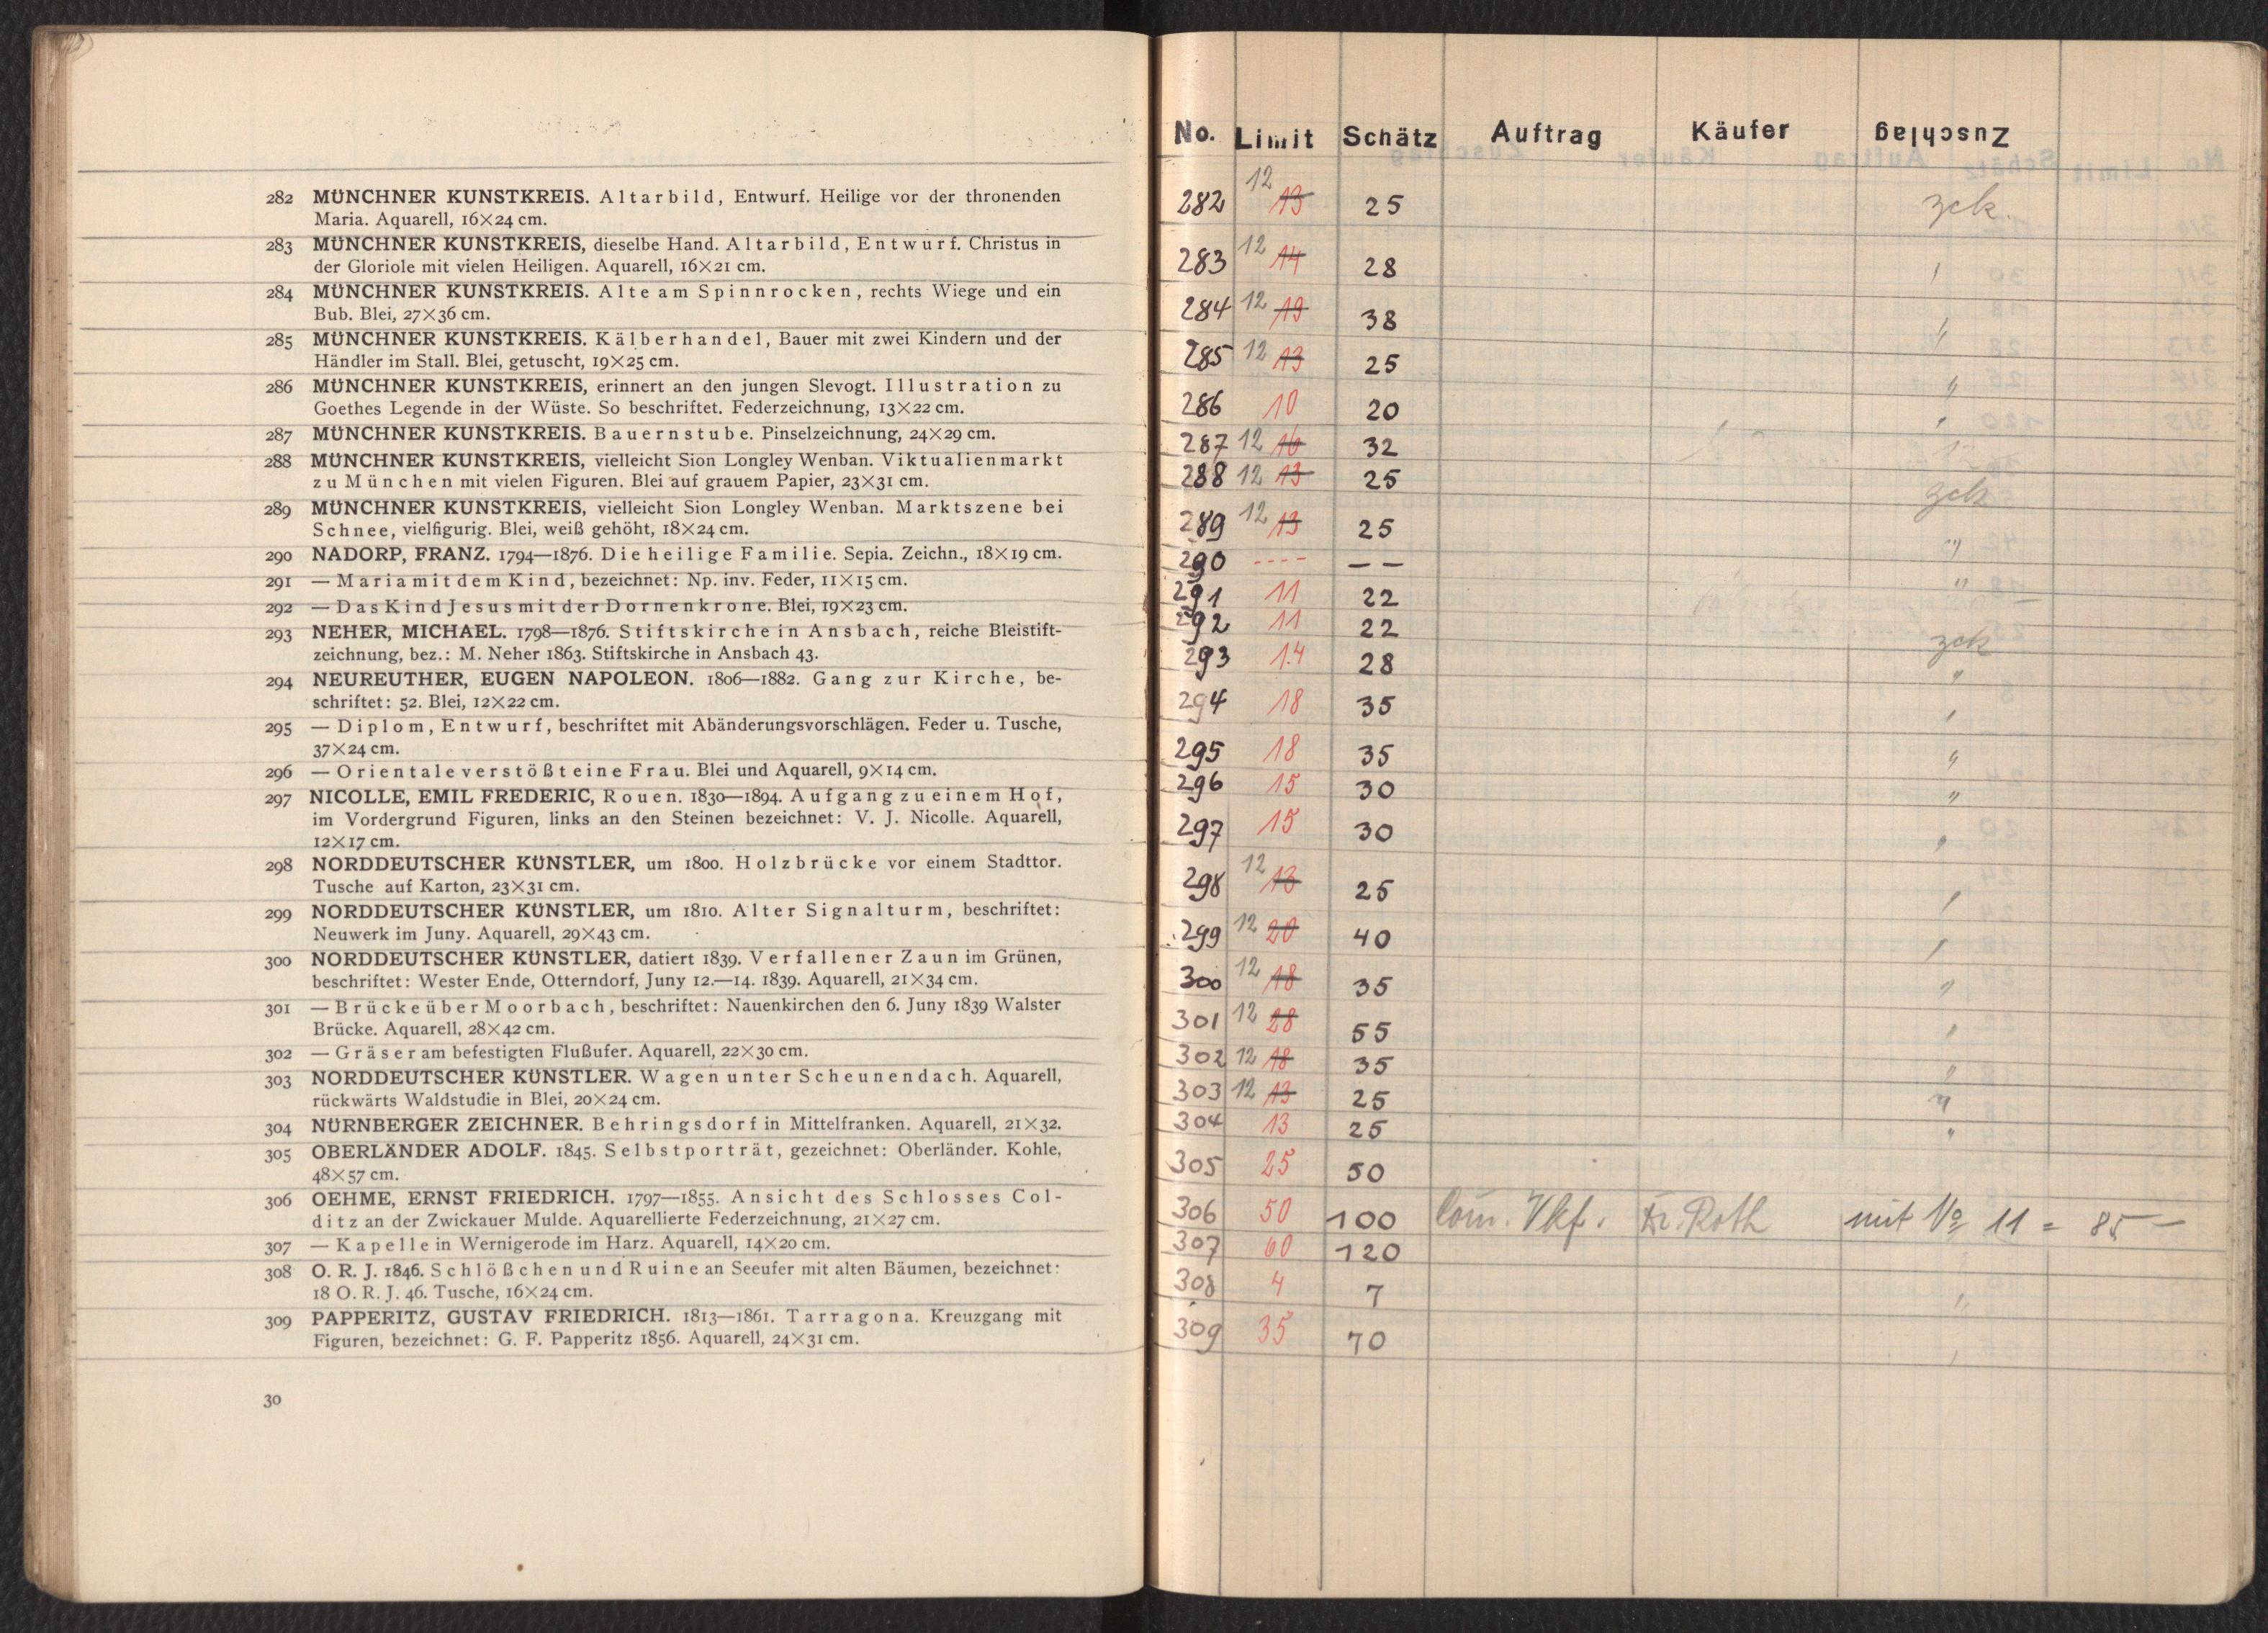 282 MÜNCHNER KUNSTKREIS. Altarbild, Entwurf. Heilige vor der thronenden
Maria. Aquarell, 16×24 cm.
283 MÜNCHNER KUNSTKREIS, dieselbe Hand. Altarbild, Entwurf. Christus in
der Gloriole mit vielen Heiligen. Aquarell, 16×21 cm.
284 MÜNCHNER KUNSTKREIS. Alte am Spinnrocken, rechts Wiege und ein
Bub. Blei, 27×36 cm.
285 MÜNCHNER KUNSTKREIS. Kälberhandel, Bauer mit zwei Kindern und der
Händler im Stall. Blei, getuscht, 19×25 cm.
286 MÜNCHNER KUNSTKREIS, erinnert an den jungen Slevogt. Illustration zu
Goethes Legende in der Wüste. So beschriftet. Federzeichnung, 13×22 cm.
287 MÜNCHNER KUNSTKREIS. Bauernstube. Pinselzeichnung, 24×29 cm.
288 MÜNCHNER KUNSTKREIS, vielleicht Sion Longley Wenban. Viktualienmarkt
zu München mit vielen Figuren. Blei auf grauem Papier, 23×31 cm.
289 MÜNCHNER KUNSTKREIS, vielleicht Sion Longley Wenban. Marktszene bei
Schnee, vielfigurig. Blei, weiß gehöht, 18×24 cm.
290 NADORP, FRANZ. 1794—1876. Die heilige Familie. Sepia. Zeichn., 18×19 cm.
291 — Maria mit dem Kind, bezeichnet: Np. inv. Feder, 11×15 cm.
292 — Das Kind Jesus mit der Dornenkrone. Blei, 19×23 cm.
293 NEHER, MICHAEL. 1798—1876. Stiftskirche in Ansbach, reiche Bleistift-
zeichnung, bez.: M. Neher 1863. Stiftskirche in Ansbach 43.
294 NEUREUTHER, EUGEN NAPOLEON. 1806—1882. Gang zur Kirche, be-
schriftet: 52. Blei, 12×22 cm.
295 — Diplom, Entwurf, beschriftet mit Abänderungsvorschlägen. Feder u. Tusche,
37×24 cm.
296 — Orientale verstößt eine Frau. Blei und Aquarell, 9×14 cm.
297 NICOLLE, EMIL FREDERIC, Rouen. 1830—1894. Aufgang zu einem Hof,
im Vordergrund Figuren, links an den Steinen bezeichnet: V. J. Nicolle. Aquarell,
12×17 cm.
298 NORDDEUTSCHER KÜNSTLER, um 1800. Holzbrücke vor einem Stadttor.
Tusche auf Karton, 23×31 cm.
299 NORDDEUTSCHER KÜNSTLER, um 1810. Alter Signalturm, beschriftet:
Neuwerk im Juny. Aquarell, 29×43 cm.
300 NORDDEUTSCHER KÜNSTLER, datiert 1839. Verfallener Zaun im Grünen,
beschriftet: Wester Ende, Otterndorf, Juny 12.—14. 1839. Aquarell, 21×34 cm.
301 — Brücke über Moorbach, beschriftet: Nauenkirchen den 6. Juny 1839 Walster
Brücke. Aquarell, 28×42 cm.
302 — Gräser am befestigten Flußufer. Aquarell, 22×30 cm.
303 NORDDEUTSCHER KÜNSTLER. Wagen unter Scheunendach. Aquarell,
rückwärts Waldstudie in Blei, 20×24 cm.
304 NÜRNBERGER ZEICHNER. Behringsdorf in Mittelfranken. Aquarell, 21×32.
305 OBERLÄNDER ADOLF. 1845. Selbstporträt, gezeichnet: Oberländer. Kohle,
48×57 cm.
306 OEHME, ERNST FRIEDRICH. 1797—1855. Ansicht des Schlosses Col-
ditz an der Zwickauer Mulde. Aquarellierte Federzeichnung, 21×27 cm.
307 — Kapelle in Wernigerode im Harz. Aquarell, 14×20 cm.
308 O. R. J. 1846. Schlößchen und Ruine an Seeufer mit alten Bäumen, bezeichnet:
18 O. R. J. 46. Tusche, 16×24 cm.
309 PAPPERITZ, GUSTAV FRIEDRICH. 1813—1861. Tarragona. Kreuzgang mit
Figuren, bezeichnet: G. F. Papperitz 1856. Aquarell, 24×31 cm.
30
No. Limit Schätz Auftrag Käufer Zuschlag
282 12 13 25 zck.
283 12 14 28 "
284 12 19 38 "
285 12 13 25 "
286 10 20 "
287 12 16 32
288 12 13 25 zck
289 12 13 25 "
290 ---- — —
291 11 22 "
292 11 22
293 14 28 zck
294 18 35 "
295 18 35 "
296 15 30 "
297 15 30 "
298 12 13 25 "
299 12 20 40 "
300 12 18 35 "
301 12 28 55 "
302 12 18 35 "
303 12 13 25 "
304 13 25 "
305 25 50
306 50 100 Com. Vkf. Dr. Roth mit No 11 = 85 —
307 60 120
308 4 7 "
309 35 70 "